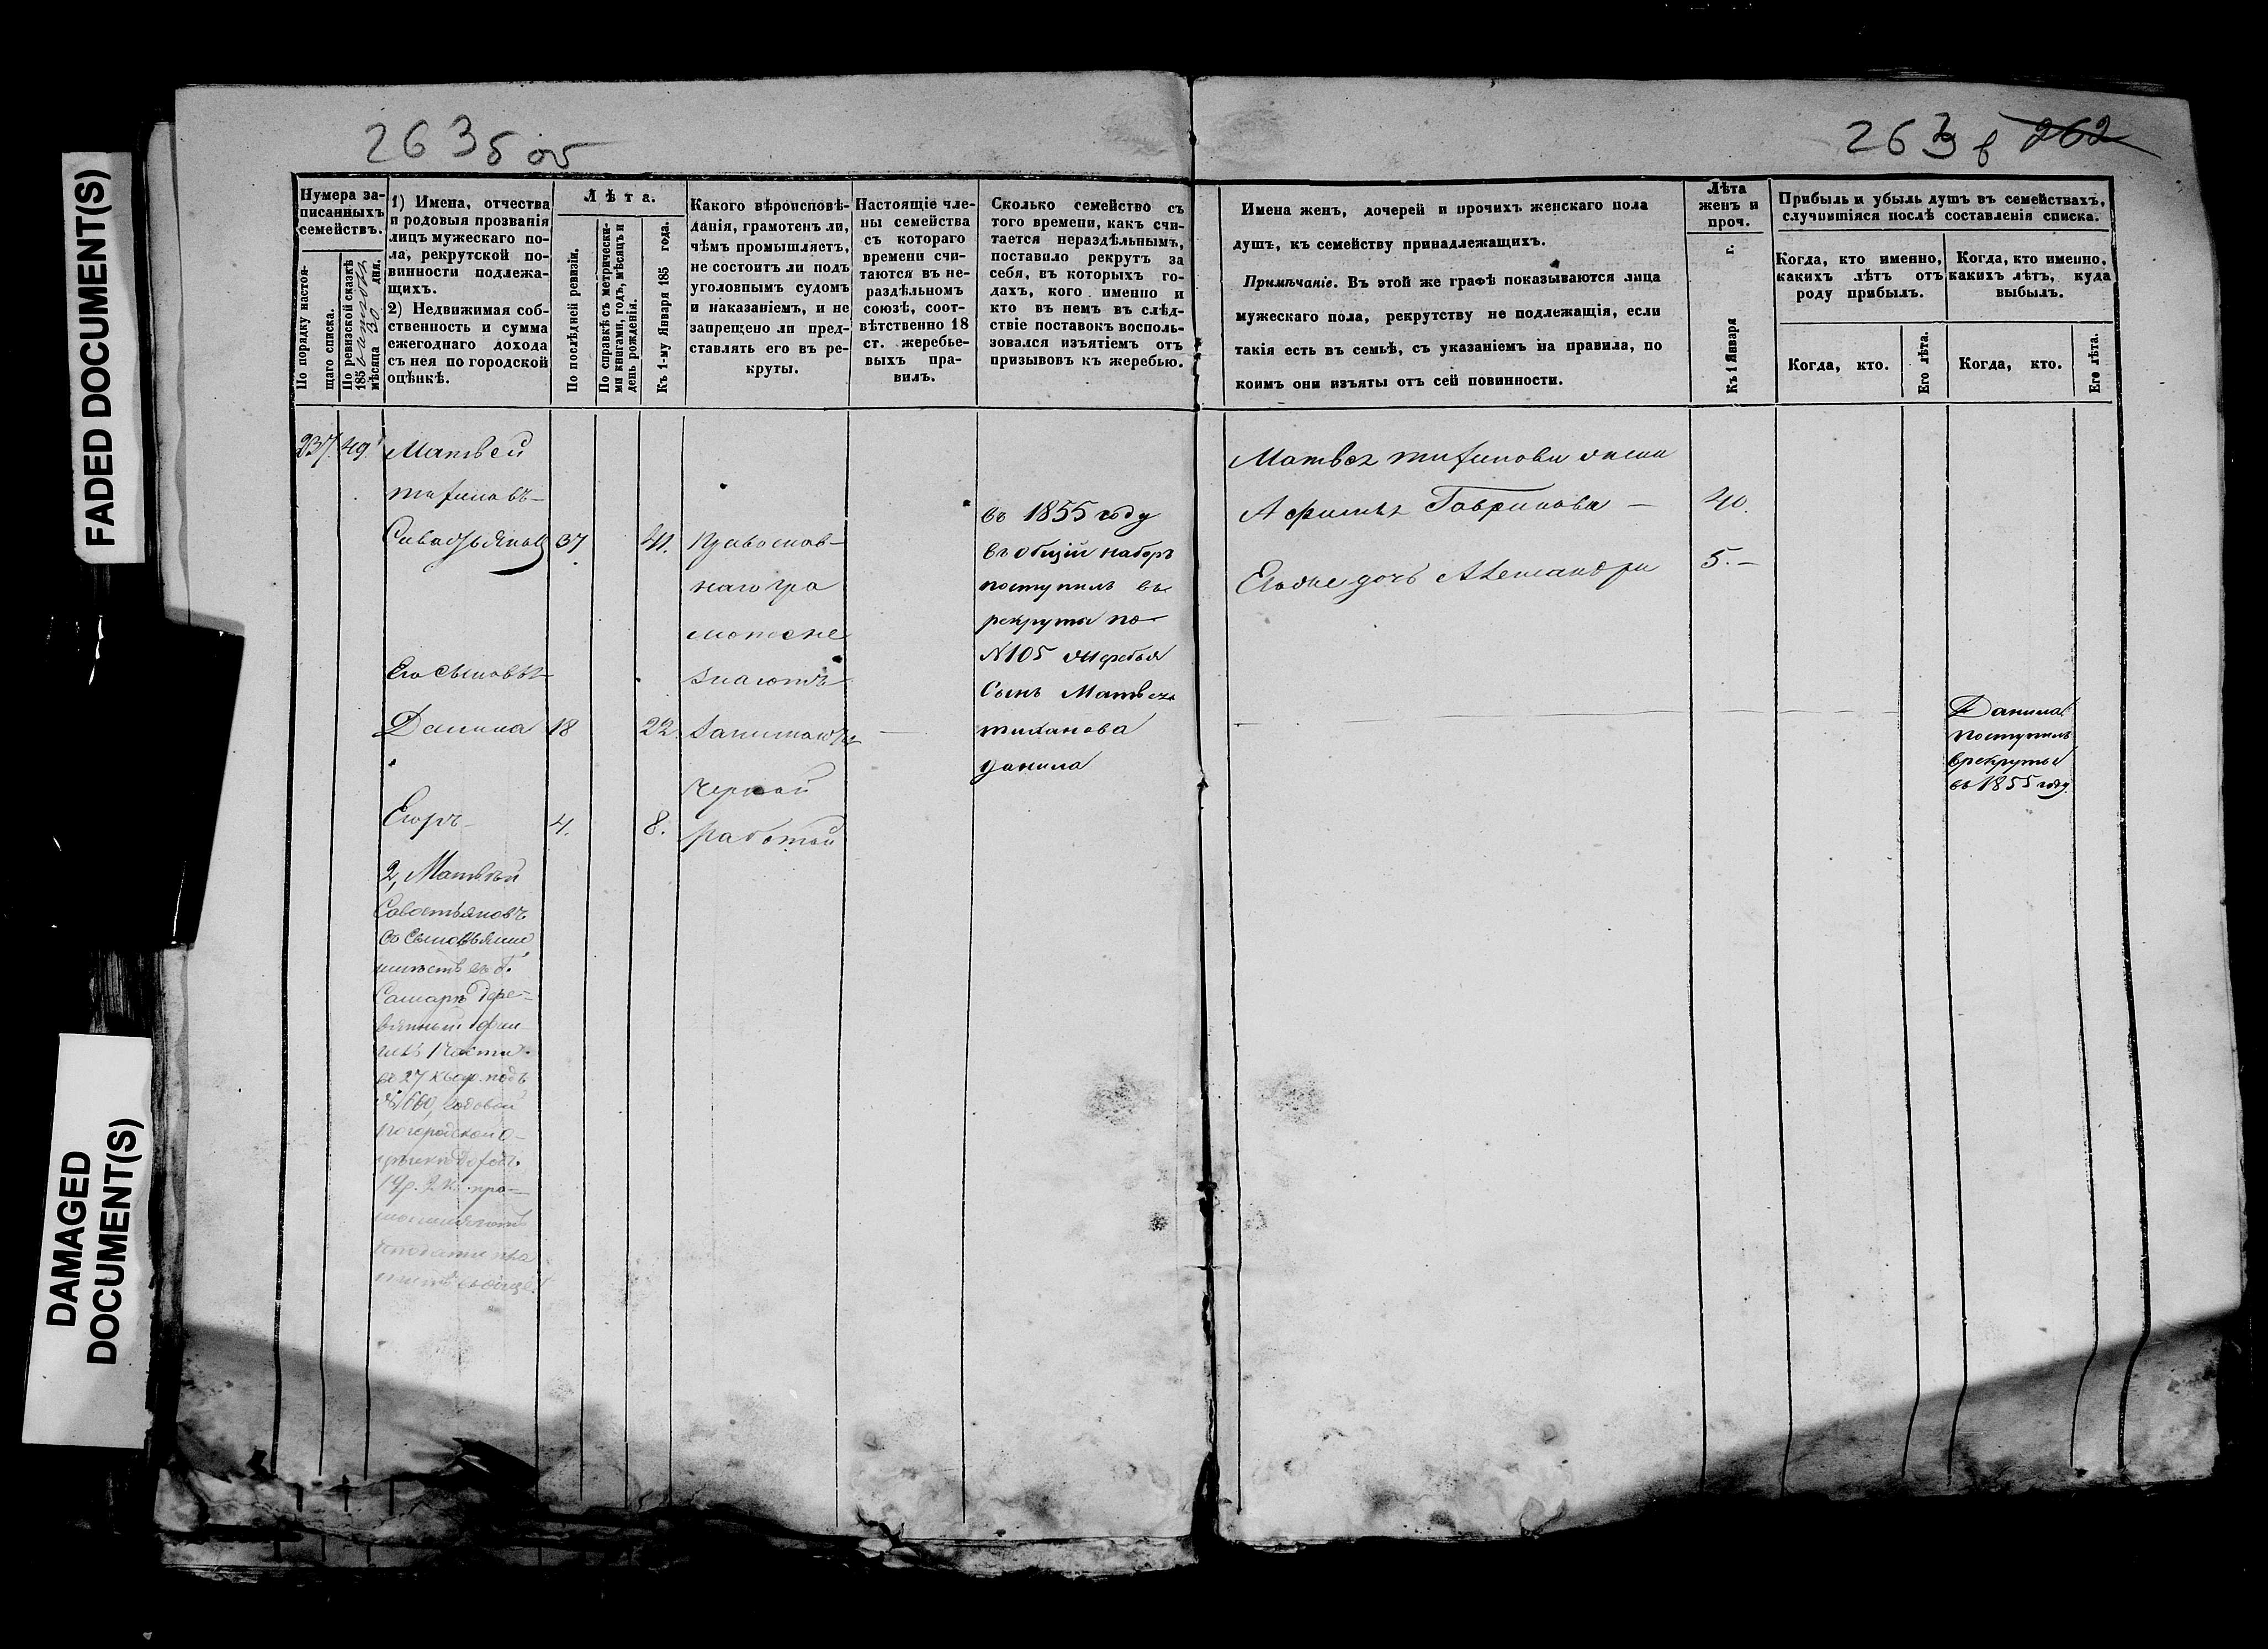 FADED DOCUMENT(S)
DAMAGED
DOCUMENT(S)
263 б об
263 в 262
Нумера за-
писанныхъ
семействъ.
По порядку настоя-
щаго списка.
По ревизской сказкѣ
185 мѣсяца 30 дня.
1) Имена, отчества
и родовыя прозванія
лицъ мужескаго по-
ла, рекрутской по-
винности подлежа-
щихъ.
2) Недвижимая соб-
ственность и сумма
ежегоднаго дохода
съ нея по городской
оцѣнкѣ.
Лѣта.
По послѣдней ревизіи.
По справкѣ съ метрически-
ми книгами, годъ, мѣсяцъ и
день рожденія.
Къ 1-му Января 185 года.
Какого вѣроисповѣ-
данія, грамотенъ ли,
чѣмъ промышляетъ,
не состоитъ ли подъ
уголовнымъ судомъ
и наказаніемъ, и не
запрещено ли пред-
ставлять его въ ре-
круты.
Настоящіе чле-
ны семейства
съ котораго
времени счи-
таются въ не-
раздѣльномъ
союзѣ, соот-
вѣтственно 18
ст. жеребье-
выхъ пра-
вилъ.
Сколько семейство съ
того времени, какъ счи-
тается нераздѣльнымъ,
поставило рекрутъ за
себя, въ которыхъ го-
дахъ, кого именно и
кто въ немъ въ слѣд-
ствіе поставокъ восполь-
зовался изъятіемъ отъ
призывовъ къ жеребью.
Имена женъ, дочерей и прочихъ женскаго пола
душъ, къ семейству принадлежащихъ.
Примѣчаніе. Въ этой же графѣ показываются лица
мужескаго пола, рекрутству не подлежащія, если
такія есть въ семьѣ, съ указаніемъ на правила, по
коимъ они изъяты отъ сей повинности.
Лѣта
женъ и
проч.
Къ 1 Января г.
Прибыль и убыль душъ въ семействахъ,
случившіяся послѣ составленія списка.
Когда, кто именно,
какихъ лѣтъ отъ
роду прибылъ.
Когда, кто именно,
какихъ лѣтъ, куда
выбылъ.
Когда, кто.
Его лѣта.
Когда, кто.
Его лѣта.
237. 49. Матвей
37 41.
Его сыновья
Данила 18 22.
Егоръ 4. 8.
Православ-
наго гра
моте не
знаютъ
занимаются
черной
работой
въ 1855 году
въ общій наборъ
поступилъ въ
рекруты по
№ 105 жеребья
Сынъ Матвея
тиханова
данила
Матвея жена
Гаврилова — 40.
Его же дочь Александра 5. —
Данила
поступилъ
в рекруты
въ 1855 году.
2, Матвей
Савостьяновъ
со сыновьями
имѣетъ въ г.
Самарѣ дере-
вянный фли
гель 1 части
въ 27 квар. подъ
годовой
по городской о-